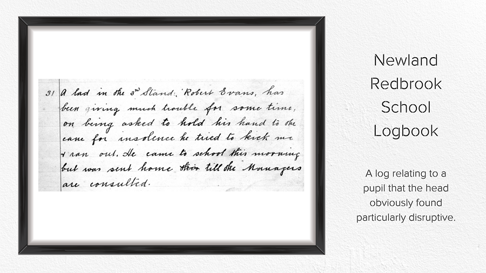 31 A lad in the 3rd Stand., Robert Evans, has
been giving much trouble for some time,
on being asked to hold his hand to the
cane for insolence he tried to kick me
& ran out. He came to school this morning
but was sent home till the Managers
are consulted.
Newland
Redbrook
School
Logbook
A log relating to a
pupil that the head
obviously found
particularly disruptive.